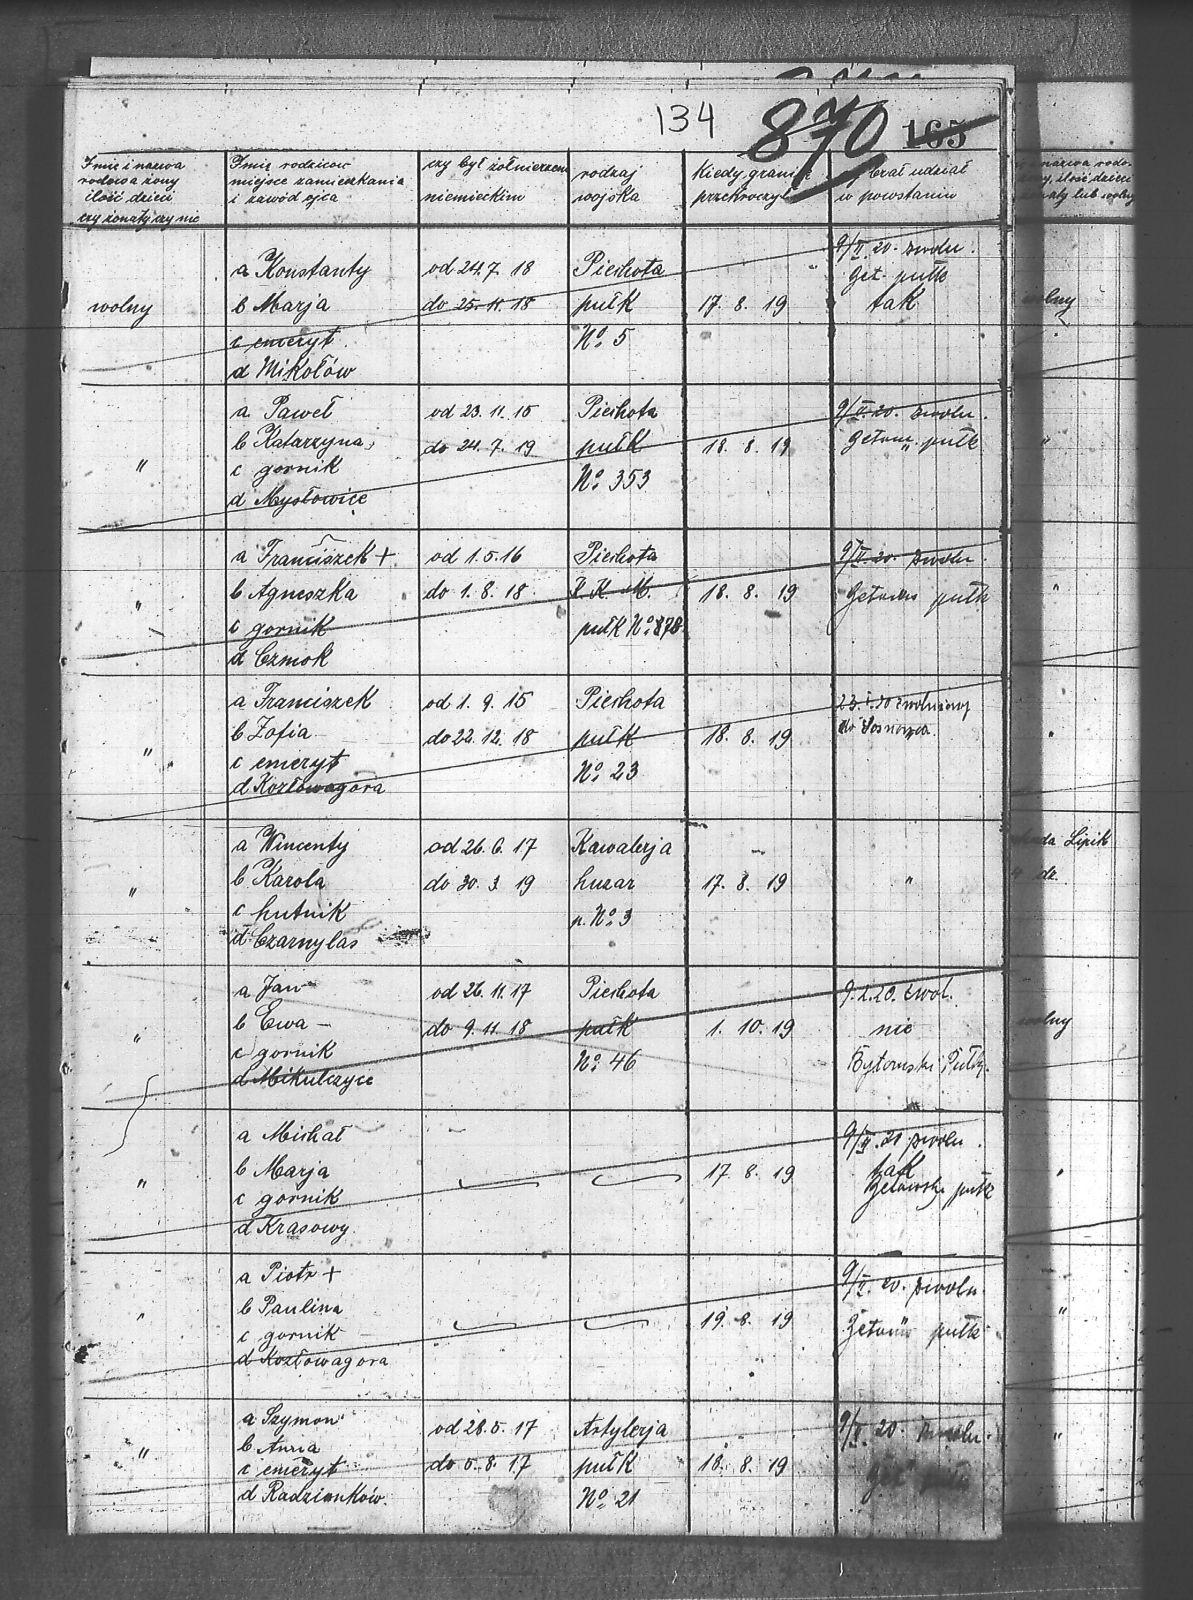 134 870 165
Imię i nazwa
rodowa żony
ilość dzieci
czy żonaty czy nie
Imię rodziców
miejsce zamieszkania
i zawód ojca
czy był żołnierzem
niemieckim
rodzaj
wojska
Kiedy granicę
przekroczył
brał udział
w powstaniu
wolny
a Konstanty
b Marja
c emeryt
d Mikołów
od 24.7. 18
do 25. 11. 18
Piechota
pułk
No. 5
17. 8. 19
9/II. 20. zwoln.
Get. pułk
tak
"
a Paweł
b Katarzyna
c gornik
d Mysłowice
od 23. 11. 15
do 24. 7. 19
Piechota
pułk
No. 353
18. 8. 19
9/II. 20. zwoln.
pułk
"
a Franciszek +
b Agneszka
c gornik
d Czmok
od 1. 5. 16
do 1. 8. 18
Piechota
K. M.
pułk No. 878
18. 8. 19
9/II. 20. zwoln.
pułk
"
a Franciszek
b Zofia
c emeryt
d Kozłowagora
od 1. 9. 15
do 22. 12. 18
Piechota
pułk
No. 23
18. 8. 19
do Sosnowca.
"
a Wincenty
b Karola
c hutnik
d Czarnylas
od 26. 6. 17
do 30. 3. 19
Kawalerja
huzar
p. No. 3
17. 8. 19
"
"
a Jan
b Ewa
c gornik
d Mikulczyce
od 26. 11. 17
do 9. 11. 18
Piechota
pułk
No. 46
1. 10. 19
9. 2. 20. zwol.
nie
Bytomski Pułk.
"
a Michał
b Marja
c gornik
d Krasowy
17. 8. 19
9/II. 21 zwoln.
tak
pułk
"
a Piotr +
b Paulina
c gornik
d Kozłowagora
19. 8. 19
9/II. 20. zwoln.
pułk
"
a Szymon
b Anna
c emeryt
d Radzionków.
od 28. 5. 17
do 5. 8. 17
Artylerja
pułk
No. 21
18. 8. 19
9/II. 20 zwoln.
wolny
"
"
"
Lipik
4 dz.
wolny
"
"
"